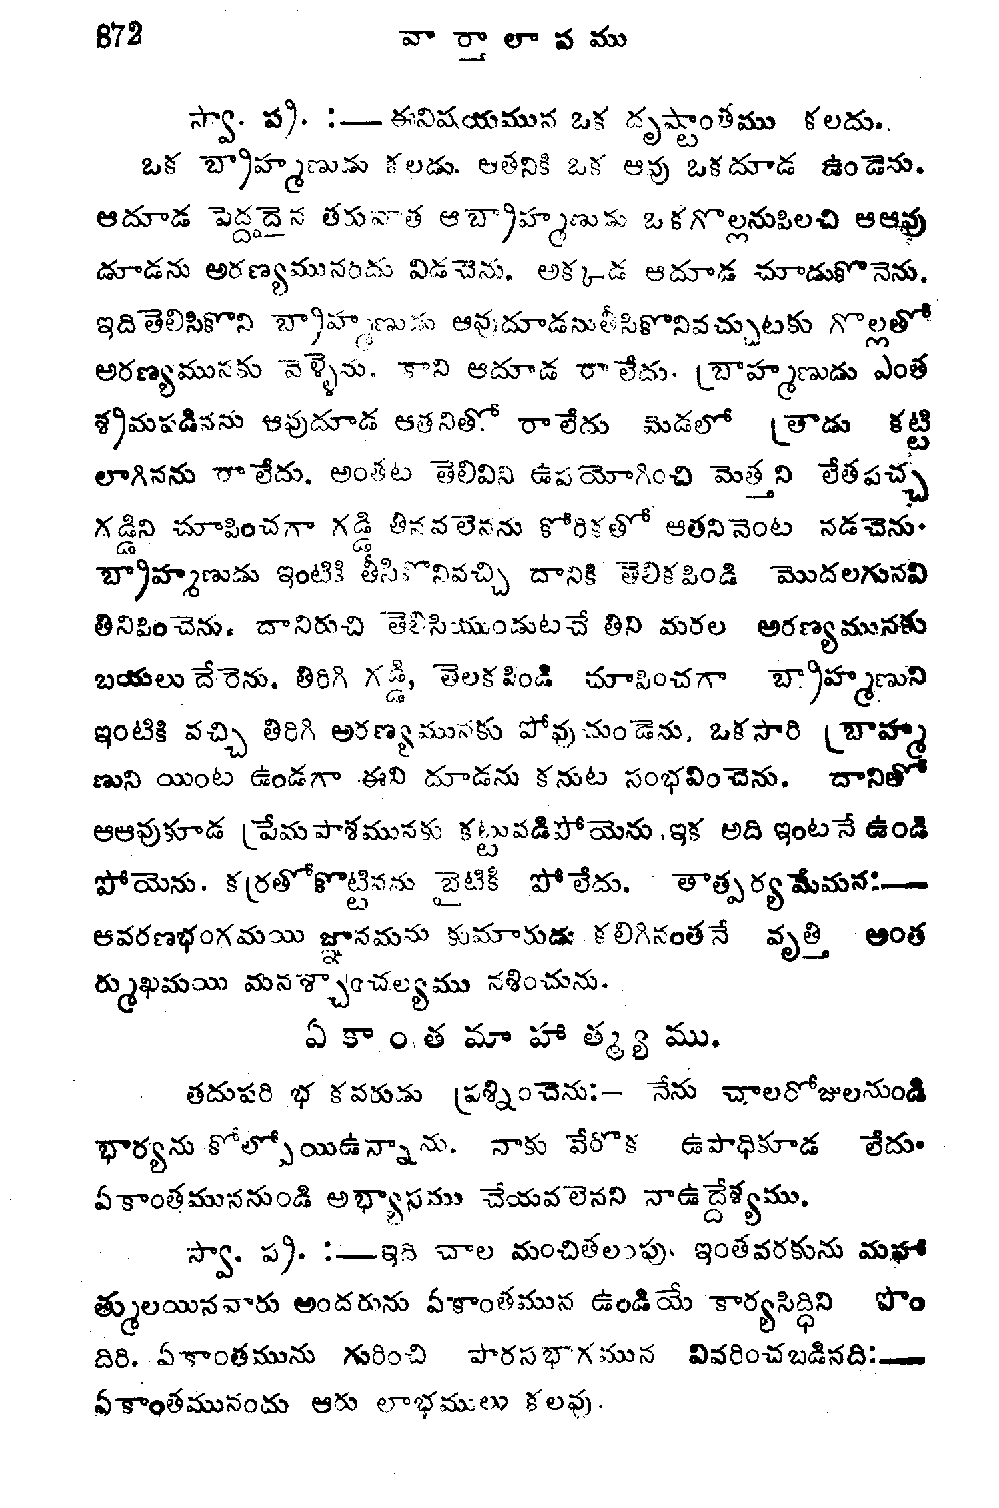 872 వార్తాలాపము
స్వా. ప్ర. :— ఈవిషయమున ఒక దృష్టాంతము కలదు.
ఒక బ్రాహ్మణుడు కలడు. ఆతనికి ఒక ఆవు ఒకదూడ ఉండెను.
ఆదూడ పెద్దదైన తరువాత ఆబ్రాహ్మణుడు ఒకగొల్లనుపిలచి ఆఆవు
దూడను అరణ్యమునందు విడచెను. అక్కడ ఆదూడ చూడుకొనెను.
ఇదితెలిసికొని బ్రాహ్మణుడు ఆవుదూడనుతీసికొనివచ్చుటకు గొల్లతో
అరణ్యమునకు వెళ్ళెను. కాని ఆదూడ రాలేదు. బ్రాహ్మణుడు ఎంత
శ్రమపడినను ఆవుదూడ ఆతనితో రాలేదు మెడలో త్రాడు కట్టి
లాగినను రాలేదు. అంతట తెలివిని ఉపయోగించి మెత్తని లేతపచ్చ
గడ్డిని చూపించగా గడ్డి తినవలెనను కోరికతో ఆతనివెంట నడచెను.
బ్రాహ్మణుడు ఇంటికి తీసికొనివచ్చి దానికి తెలికపిండి మొదలగునవి
తినిపించెను. దానిరుచి తెలిసియుండుటచే తిని మరల అరణ్యమునకు
బయలుదేరెను. తిరిగి గడ్డి, తెలకపిండి చూపించగా బ్రాహ్మణుని
ఇంటికి వచ్చి తిరిగి అరణ్యమునకు పోవుచుండెను. ఒకసారి బ్రాహ్మ
ణుని యింట ఉండగా ఈవి దూడను కనుట సంభవించెను. దానితో
ఆఆవుకూడ ప్రేమపాశమునకు కట్టువడిపోయెను.ఇక అది ఇంటనే ఉండి
పోయెను. కర్రతోకొట్టినను బైటికి పోలేదు. తాత్పర్యమేమన:—
ఆవరణభంగమయి జ్ఞానమను కుమారుడు కలిగినంతనే వృత్తి అంత
ర్ముఖమయి మనశ్చాంచల్యము నశించును.
ఏకాంతమాహాత్మ్యము.
తదుపరి భ కవరుడు ప్రశ్నించెను:— నేను చాలరోజులనుండి
భార్యను కోల్పోయిఉన్నాను. నాకు వేరొక ఉపాధికూడ లేదు.
ఏకాంతముననుండి అభ్యాసము చేయవలెనని నాఉద్దేశ్యము.
స్వా. ప్ర. :—ఇది చాల మంచితలాపు. ఇంతవరకును మహా
త్ములయినవారు అందరును ఏకాంతమున ఉండియే కార్యసిద్ధిని పొం
దిరి. ఏకాంతమును గురించి పారసభాగమున వివరించబడినది:—
ఏకాంతమునందు ఆరు లాభములు కలవు.